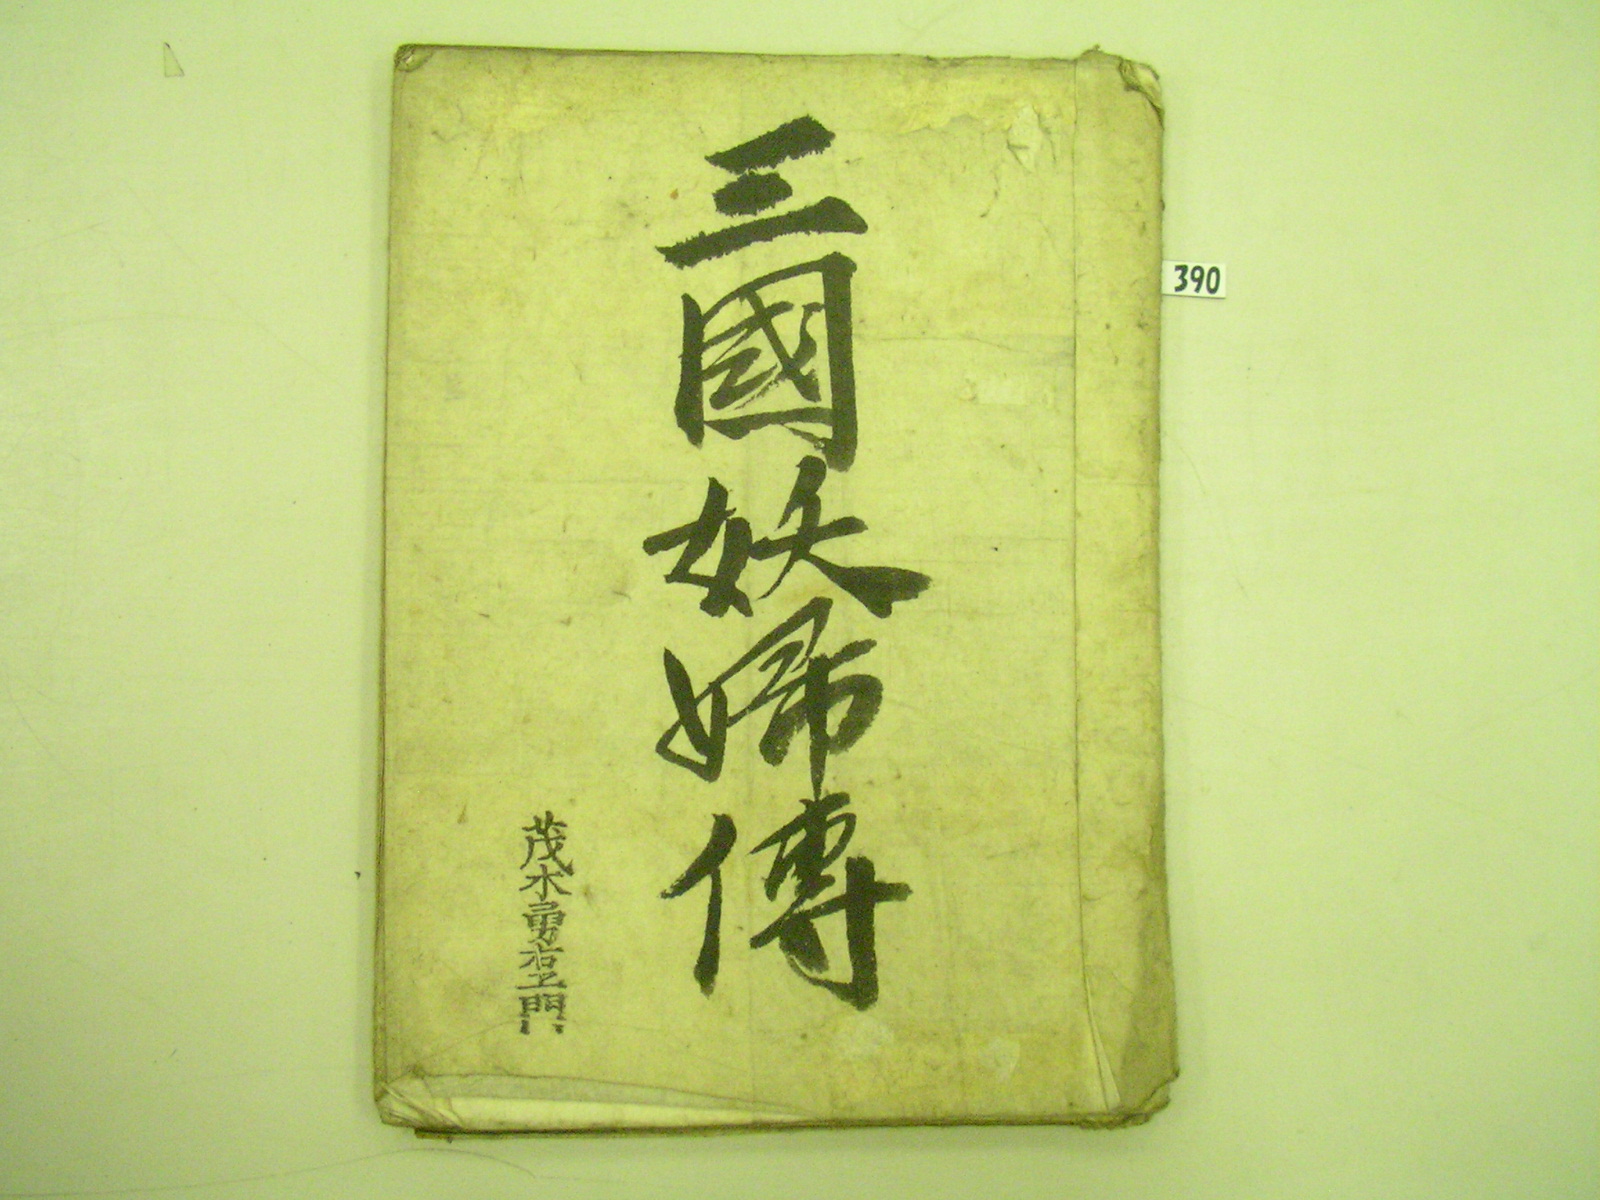 三國妖婦傳
茂木勇右エ門
390